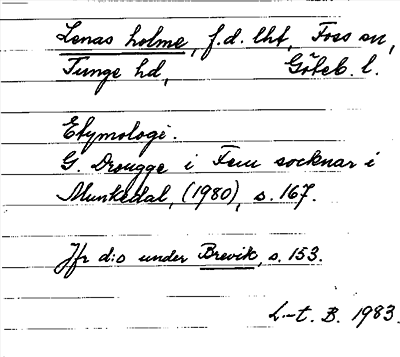 Lenas holme, f.d. lht, Foss sn,
Tunge hd, Göteb. l.
Etymologi.
G. Drougge i Fem socknar i
Munkedal, (1980), s. 167.
Jfr d:o under Brevik, s. 153.
L-t. B. 1983.